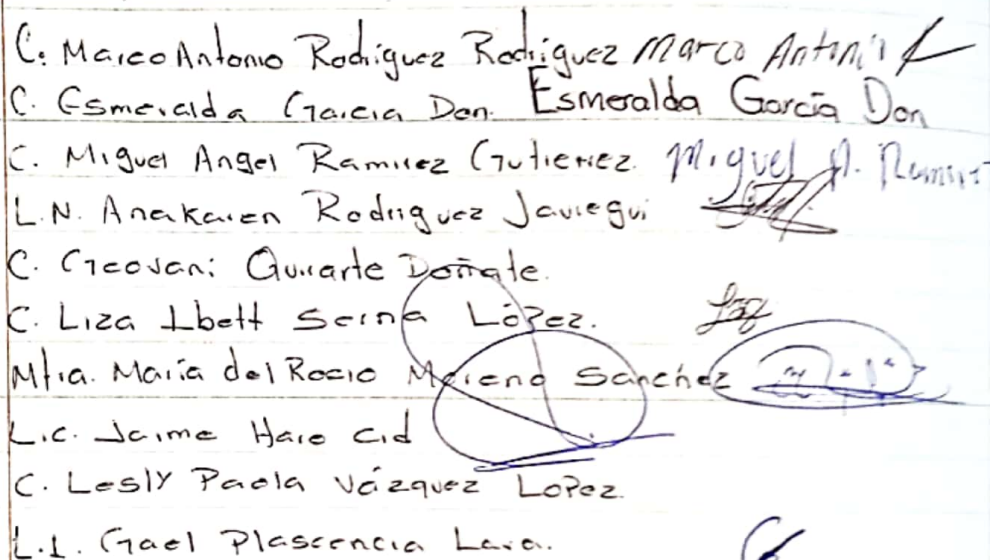 C. Marco Antonio Rodriguez Rodriguez Marco Antoni
C. Esmeralda Garcia Don. Esmeralda García Don
C. Miguel Angel Ramirez Gutierrez. Miguel A. Ramir
L.N. Anakaren Rodriguez Jauregui
C. Geovani Quirarte Doñate.
C. Liza Ibett Serna López.
Mtra. María del Rocio Moreno Sanchez
Lic. Jaime Haro Cid
C. Lesly Paola Vázquez Lopez.
L.I. Gael Plascencia Lara.